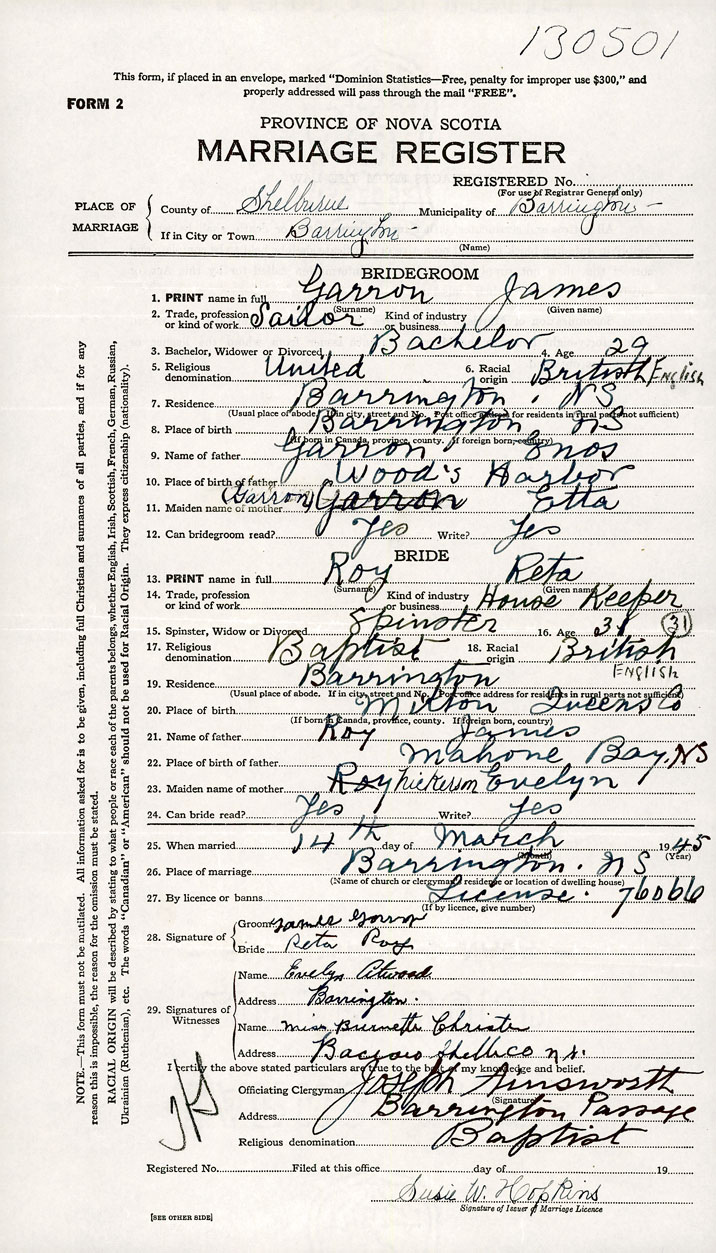 130501
This form, if placed in an envelope, marked "Dominion Statistics—Free, penalty for improper use $300," and
properly addressed will pass through the mail "FREE".
FORM 2
PROVINCE OF NOVA SCOTIA
MARRIAGE REGISTER
REGISTERED No.
(For use of Registrar General only)
PLACE OF MARRIAGE
County of Shelburne Municipality of Barrington
If in City or Town Barrington
(Name)
BRIDEGROOM
1. PRINT name in full Garron James
(Surname) (Given name)
2. Trade, profession or kind of work Sailor Kind of industry or business
3. Bachelor, Widower or Divorced Bachelor 4. Age 29
5. Religious denomination United 6. Racial origin British English
7. Residence Barrington, NS
(Usual place of abode. If in city, street and No. Post office address for residents in rural parts not sufficient)
8. Place of birth Barrington NS
(If born in Canada, province, county. If foreign born, country)
9. Name of father Garron Enos
10. Place of birth of father Wood's Harbor
11. Maiden name of mother (Garron) Garron Etta
12. Can bridegroom read? Yes Write? Yes
BRIDE
13. PRINT name in full Roy Reta
(Surname) (Given name)
14. Trade, profession or kind of work Kind of industry or business House Keeper
15. Spinster, Widow or Divorced Spinster 16. Age 31 (31)
17. Religious denomination Baptist 18. Racial origin British
ENGLISH
19. Residence Barrington
(Usual place of abode. If in city, street and No. Post office address for residents in rural parts not sufficient)
20. Place of birth Milton Queens Co
(If born in Canada, province, county. If foreign born, country)
21. Name of father Roy James
22. Place of birth of father Mahone Bay, NS
23. Maiden name of mother Roy Nickerson Evelyn
24. Can bride read? Yes Write? Yes
25. When married 14th day of March 1945
(Month) (Year)
26. Place of marriage Barrington. NS
(Name of church or clergyman's residence or location of dwelling house)
27. By licence or banns License. 76066
(If by licence, give number)
28. Signature of
Groom James Garron
Bride Reta Roy
29. Signatures of Witnesses
Name Evelyn Atwood
Address Barrington.
Name Miss Burnette Christie
Address Baccaro Shelb Co N.S.
I certify the above stated particulars are true to the best of my knowledge and belief.
Officiating Clergyman Joseph Ainsworth
(Signature)
Address Barrington Passage
Religious denomination Baptist
Registered No. Filed at this office day of 19
Susie W. Hopkins
Signature of Issuer of Marriage Licence
[SEE OTHER SIDE]
NOTE.—This form must not be mutilated. All information asked for is to be given, including full Christian and surnames of all parties, and if for any
reason this is impossible, the reason for the omission must be stated.
RACIAL ORIGIN will be described by stating to what people or race each of the parents belongs, whether English, Irish, Scottish, French, German, Russian,
Ukrainian (Ruthenian), etc. The words "Canadian" or "American" should not be used for Racial Origin. They express citizenship (nationality).